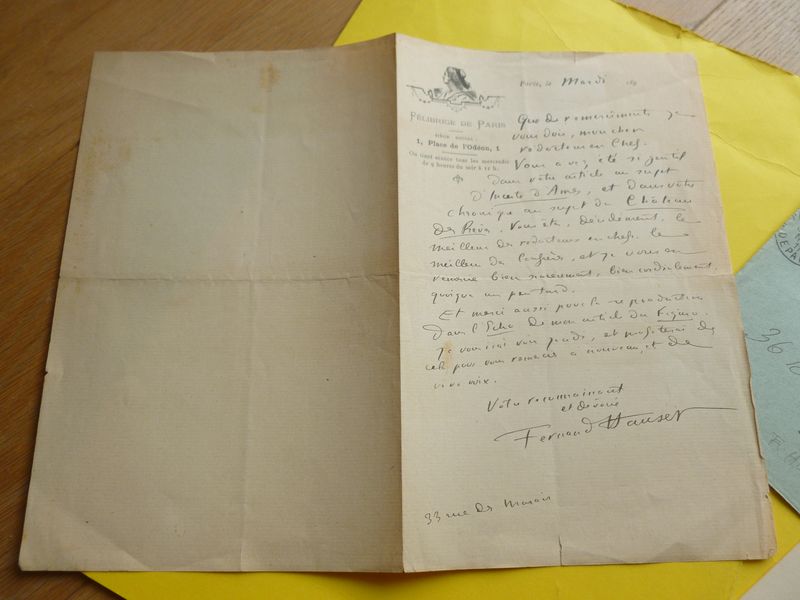 Paris, le Mardi 189
FÉLIBRIGE DE PARIS
SIÈGE SOCIAL :
1, Place de l'Odéon, 1
On tient séance tous les mercredis
de 9 heures du soir à 11 h.
Que de remerciements je
vous dois, mon cher
rédacteur en Chef.
Vous avez été si gentil
dans votre article au sujet
d'Inceste d'Ames, et dans votre
chronique au sujet du Château
des Rêves. Vous êtes, décidément, le
meilleur des rédacteurs en chefs, le
meilleur des confrères, et je vous en
remercie bien sincèrement, bien cordialement,
quoique un peu tard.
Et merci aussi pour la reproduction
dans l'Echo de mon article du Figaro.
Je vous irai voir jeudi, et profiterai de
cela pour vous remercier à nouveau, et de
vive voix.
Votre reconnaissant
et dévoué
Fernand Hauser
33 rue des Marais
36 R